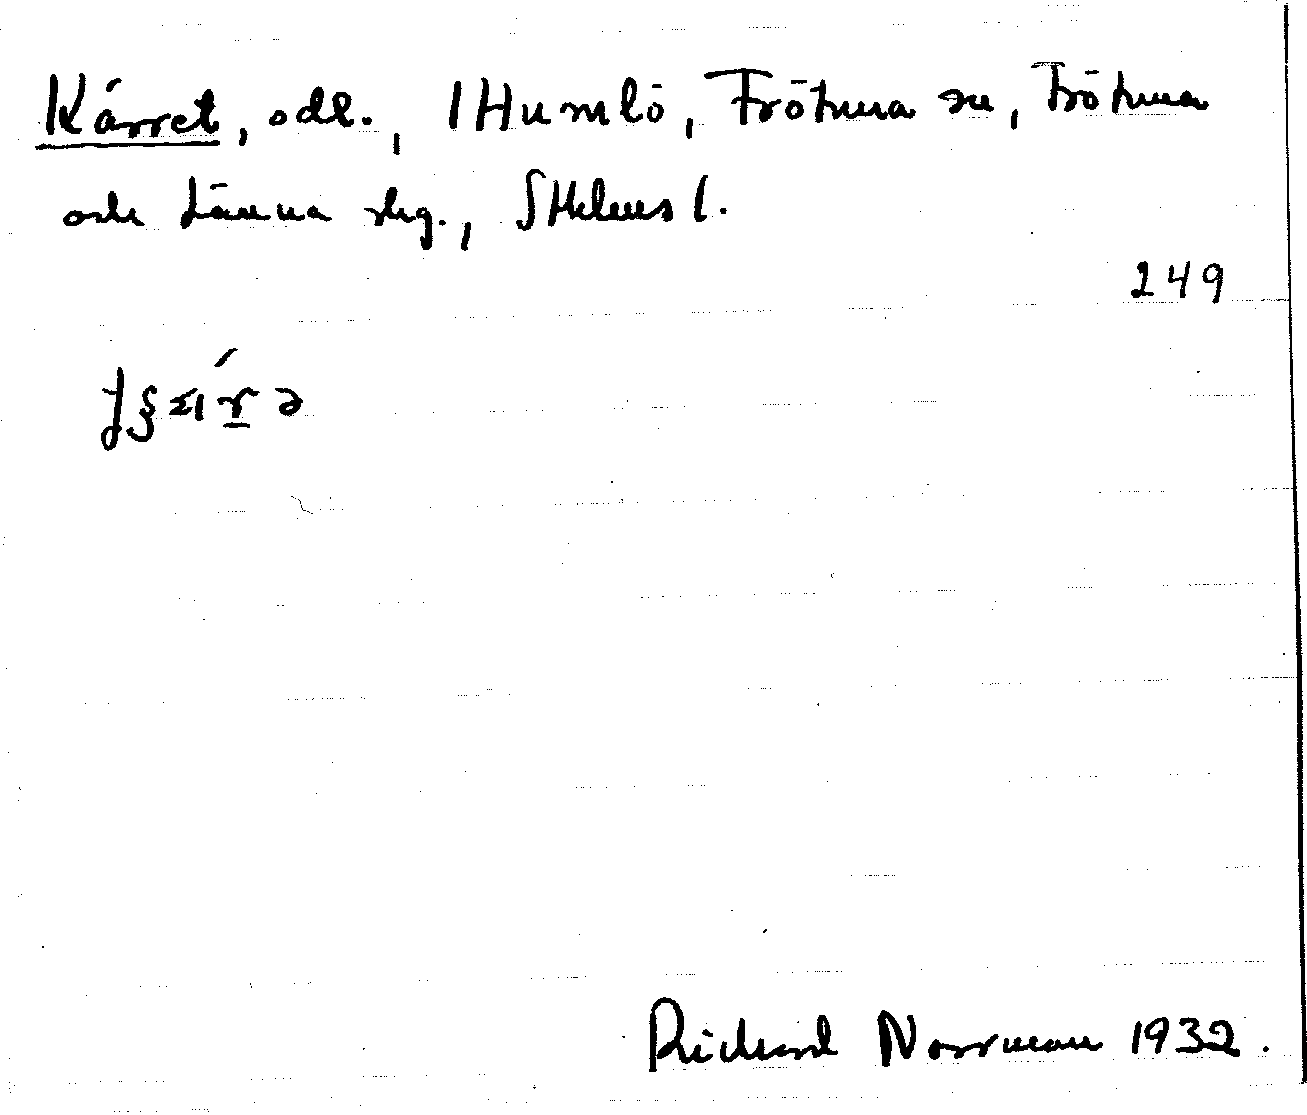 Kärret, odl., 1 Humlö, Frötuna sn, Frötuna
och Länna skg., Sthlms l.
249
Richard Norrman 1932.